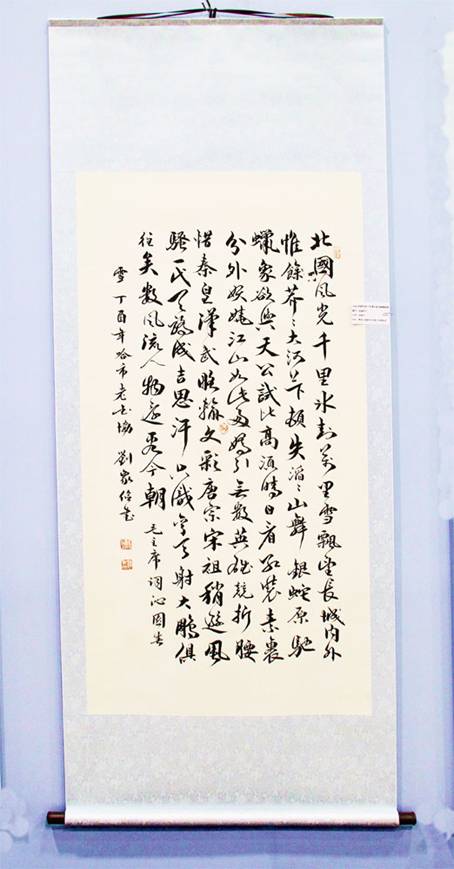 北國風光千里冰封萬里雪飄望長城内外
惟餘莽々大河上下頓失滔々山舞銀蛇原馳
蠟象欲與天公試比高須晴日看紅裝素裹
分外妖嬈江山如此多嬌引無數英雄競折腰
惜秦皇漢武略輸文彩唐宗宋祖稍遜風
騷一代天驕成吉思汗只識彎弓射大鵰俱
往矣數風流人物還看今朝 毛主席詞沁園春
雪 丁酉年哈市老書協 劉家